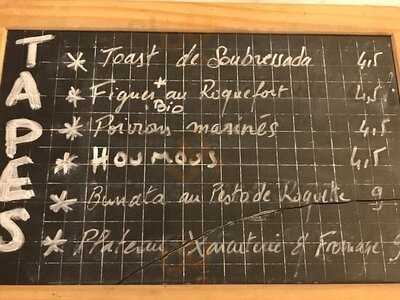 TAPES
* Toast de Soubressada 4,5
* Figues* au Roquefort 4,5
Bio
* Poivrons marinés 4,5
* HOUMOUS 4,5
* Burrata au Pesto de Roquette 9
* Plateau Xarcuterie & Fromage 9